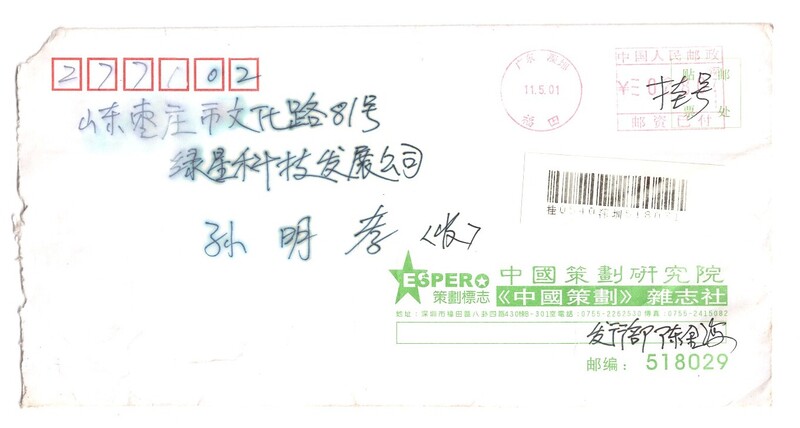 277102
山东枣庄市文化路81号
绿星科技发展公司
孙明孝〈收〉
广东 深圳
11.5.01
福田
中国人民邮政
¥
贴 邮
票 处
挂号
邮资已付
ESPERO
策劃標志
中國策劃研究院
《中國策劃》雜志社
地址:深圳市福田區八卦四路430棟8-301室電話:0755-2262530 傳真:0755-2415082
发行部 陈
邮编: 518029